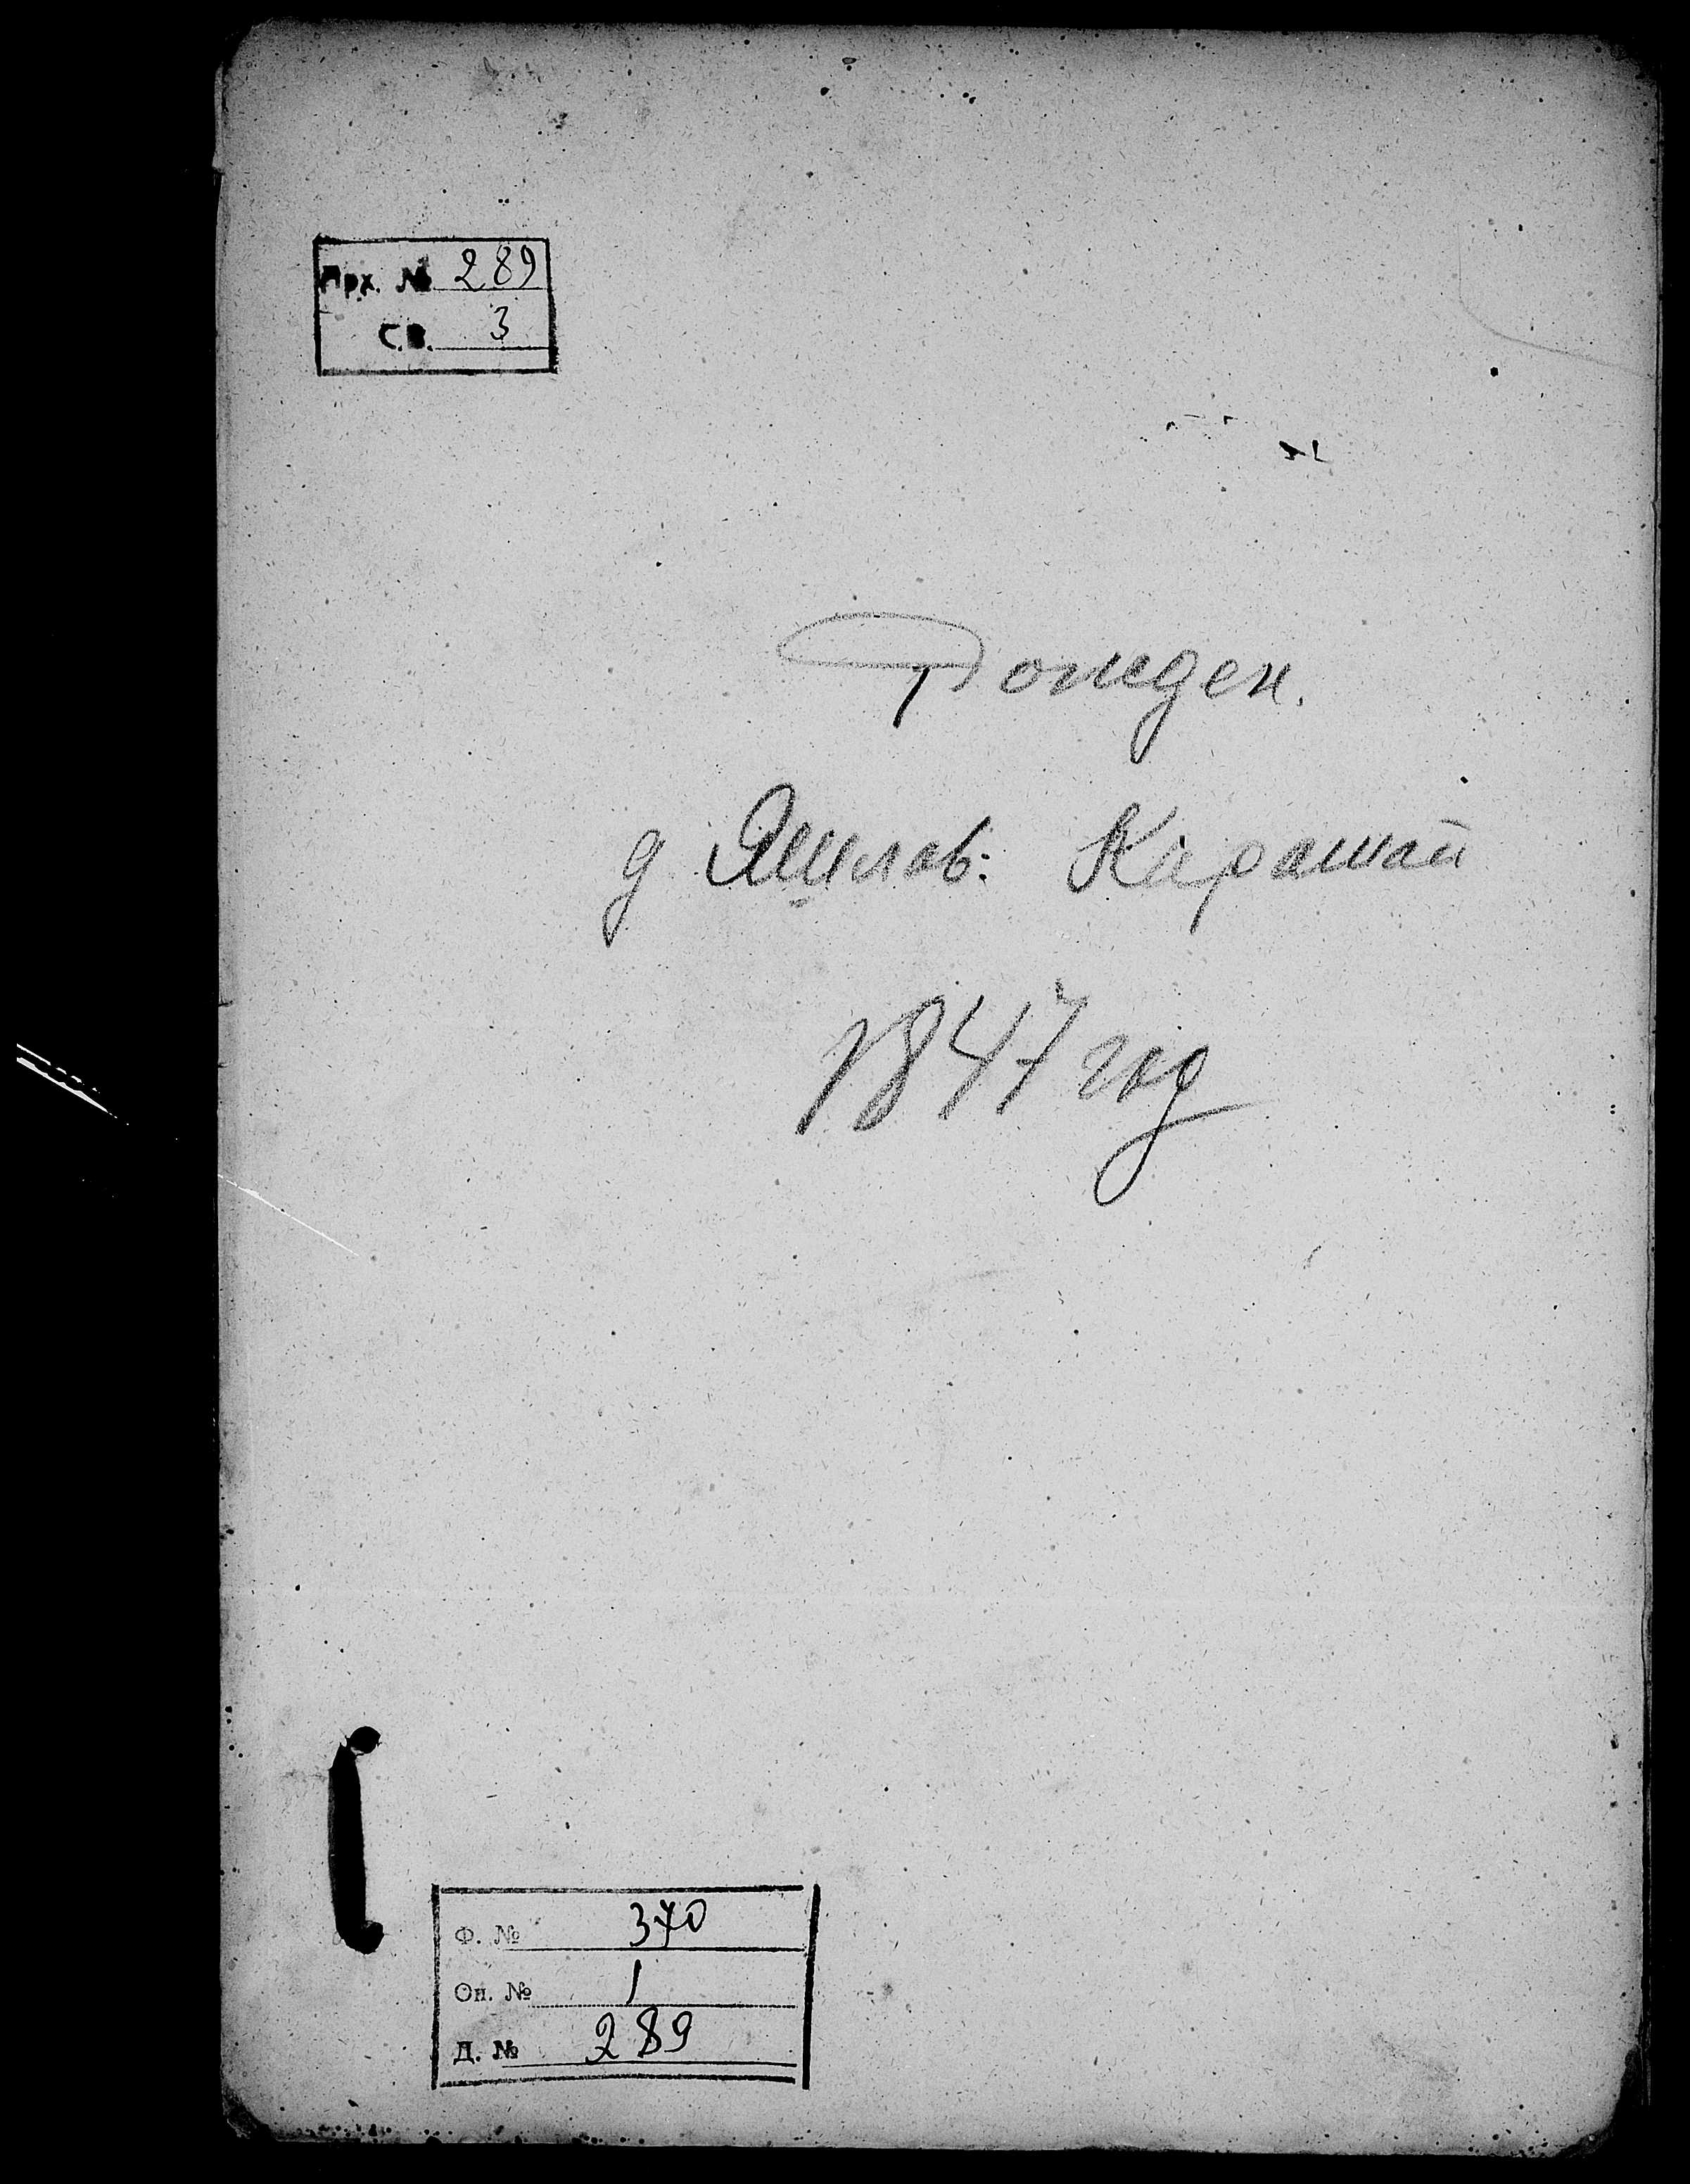 Арх. № 289
С.В. 3
Рожден.
д. Яшлав. Карашай
1847 год
Ф. № 370
Оп. № 1
Д. № 289